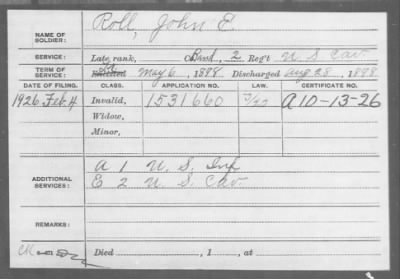 NAME OF SOLDIER: Roll, John E.
SERVICE: Late rank, Band, 2 Reg't U S Cav
TERM OF SERVICE: Enlisted May 6, 1898, Discharged Aug 28, 1898
DATE OF FILING. CLASS. APPLICATION NO. LAW. CERTIFICATE NO.
1926 Feb. 4 Invalid, 1531660 A 10-13-26
Widow,
Minor,
ADDITIONAL SERVICES: A 1 U. S. Inf
E 2 U. S. Cav.
REMARKS:
Died , 1 , at